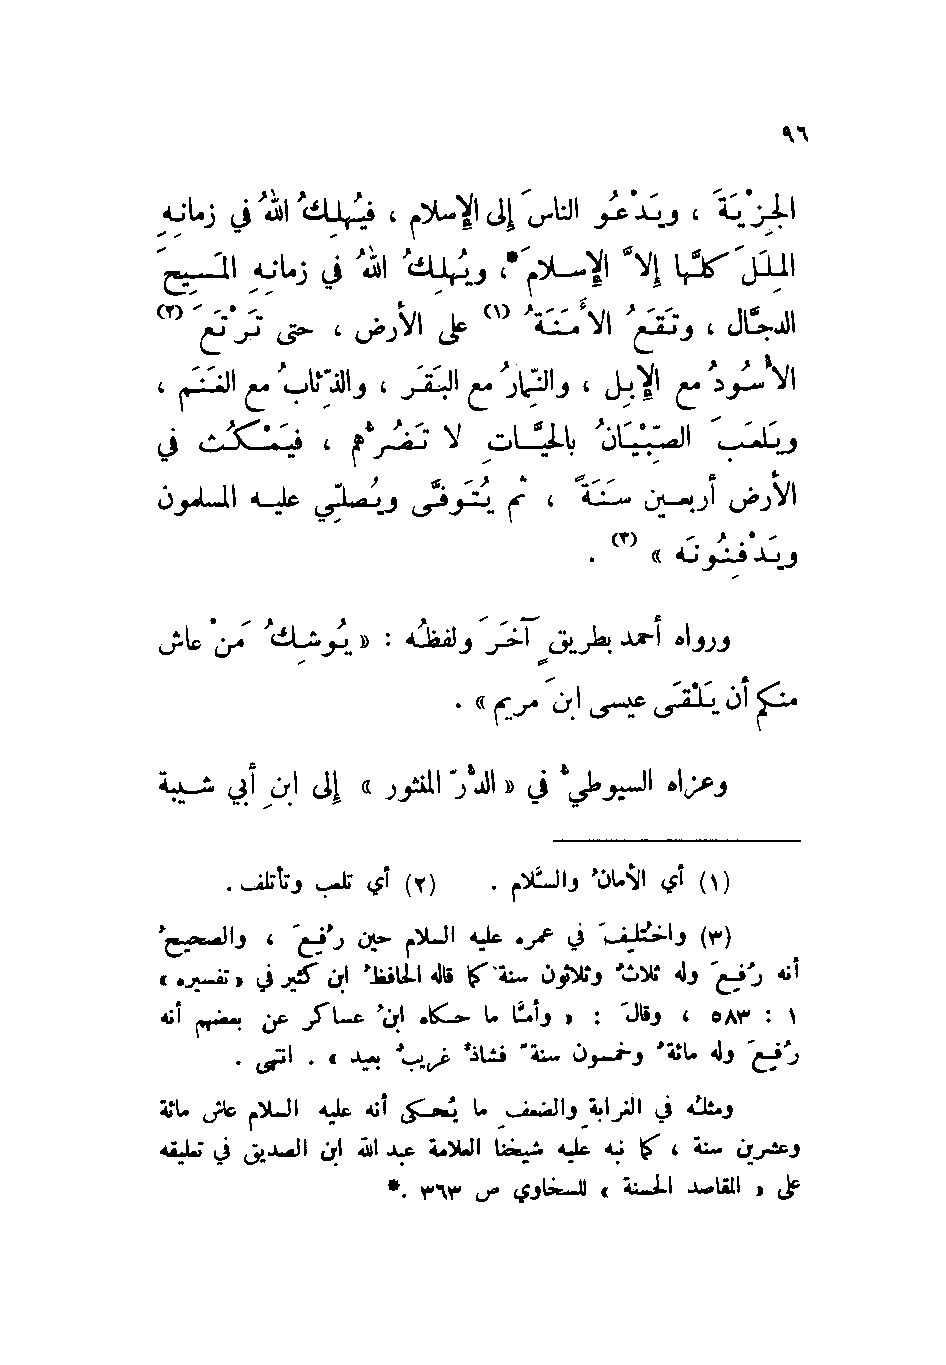 ٩٦
الجِزْيَةَ ، ويَدْعُو الناسَ إلى الإسلام ، فيُهلِكُ اللهُ في زمانِهِ
المِلَلَ كلَّها إلاَّ الإسلامَ*، ويُهلِكُ اللهُ في زمانِهِ المَسِيحَ
الدجَّال ، وتَقَعُ الأَمَنَةُ (١) على الأرض ، حتى تَرْتَعَ (٢)
الأُسُودُ مع الإِبل ، والنِّمارُ مع البَقَر ، والذِّئابُ مع الغَنَم ،
ويَلعَبَ الصِّبْيَانُ بالحَيَّاتِ لا تَضُرُّهم ، فيَمْكُث في
الأرض أربعين سَنَةً ، ثم يُتَوفَّى ويُصلِّي عليه المسلمون
ويَدْفِنُونَه » (٣) .
ورواه أحمد بطريقٍ آخَرَ ولفظُه : « يُوشِكُ مَنْ عاش
منكم أن يَلْقَى عيسى ابنَ مريم » .
وعزاه السيوطيُّ في « الدُّرّ المنثور » إلى ابنِ أبي شيبة
(١) أي الأمانُ والسَّلام . (٢) أي تلعب وتأتلف .
(٣) واختُلِفَ في عمره عليه السلام حين رُفِعَ ، والصحيحُ
أنه رُفِعَ وله ثلاثٌ وثلاثون سنةً كما قاله الحافظُ ابن كثير في « تفسيره »
١ : ٥٨٣ ، وقالَ : « وأمَّا ما حكاه ابنُ عساكر عن بعضهم أنه
رُفِعَ وله مائةٌ وخمسون سنةً فشاذٌّ غريبٌ بعيد » . انتهى .
ومثلُه في الغرابةِ والضعفِ ما يُحكى أنه عليه السلام عاش مائة
وعشرين سنة ، كما نبه عليه شيخنا العلامة عبد الله ابن الصديق في تعليقه
على « المقاصد الحسنة » للسخاوي ص ٣٦٣ .*